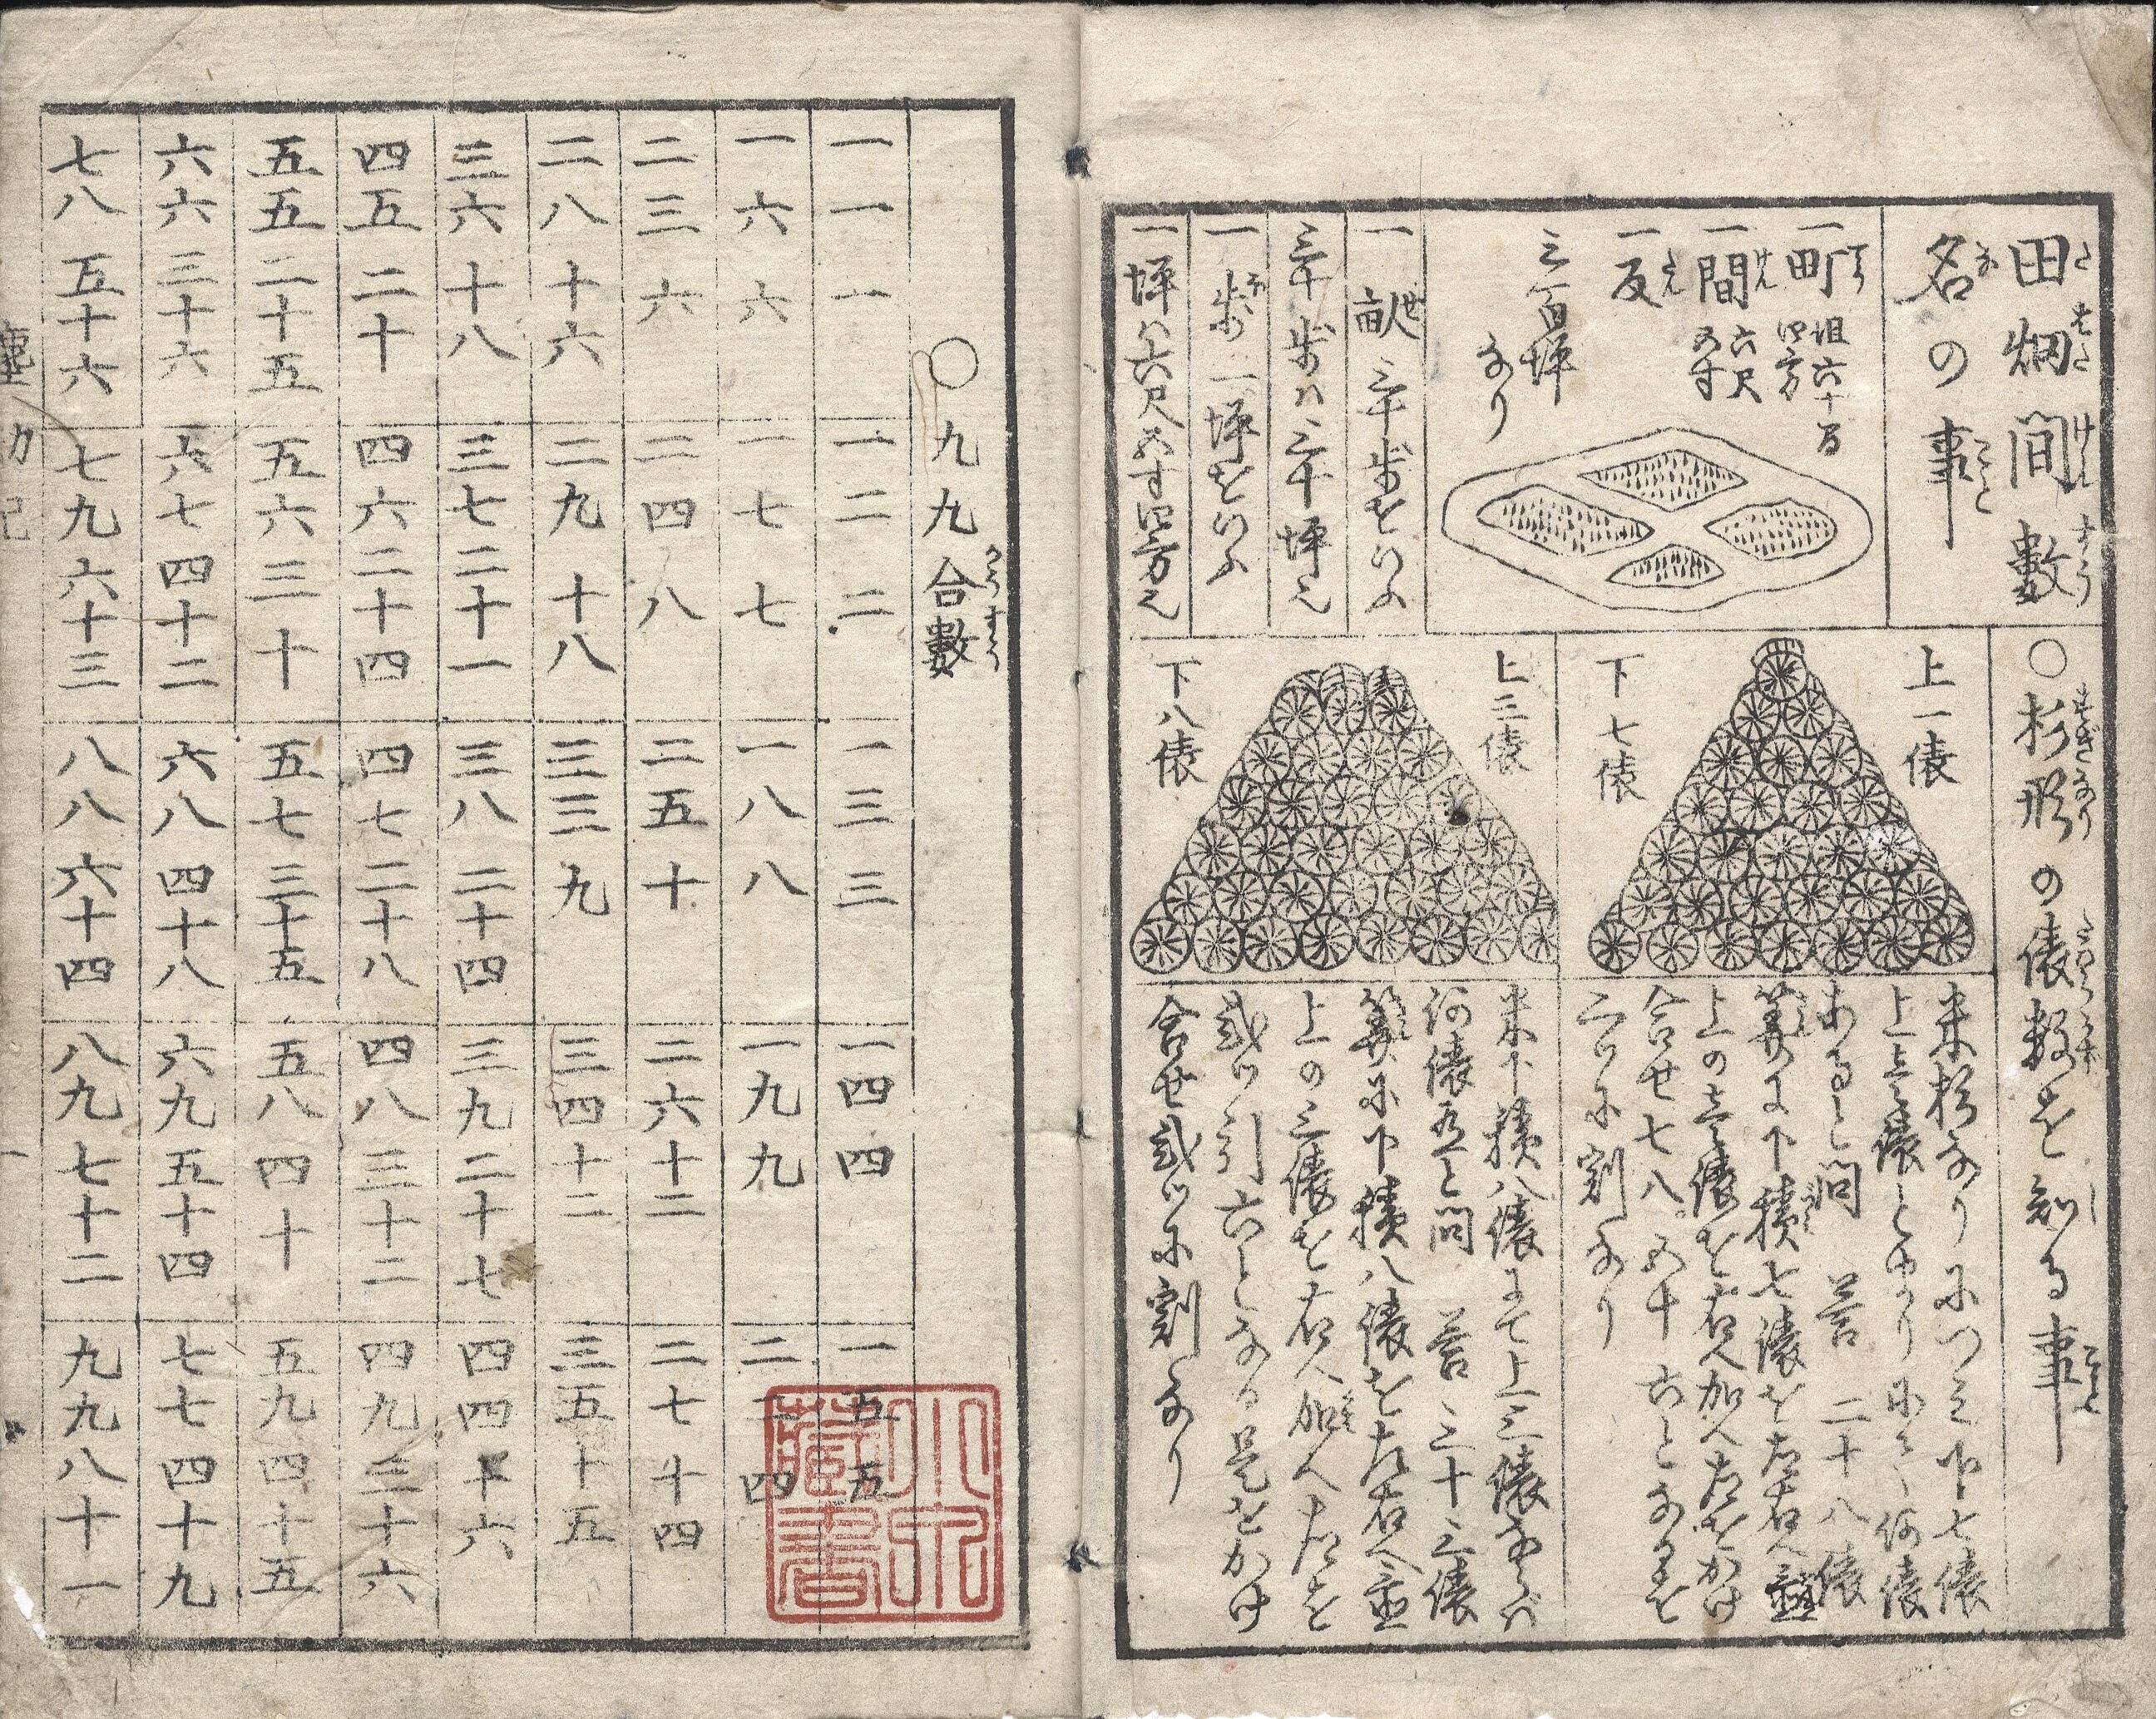 田畑間數
名の事
一町
六十間
四方
一間
六尺
五寸
一反
三百坪
なり
一畝 三十歩をいふ
三十歩ハ三十坪也
一歩 一坪をいふ
一坪ハ六尺五寸四方也
○杉形の俵数を知る事
上一俵
下七俵
上三俵
下八俵
米杉なりにつミ下七俵
あると問 答 二十八俵
合せ七八五十六となるを
二ツに割なり
米下積八俵にて上三俵なれバ
何俵有と問 答 三十三俵
上の三俵を右へ加へ左を
弐ツ引六となる是をかけ
合せ弐ツに割なり
○九九合數
一一 一
一二 二
一三 三
一四 四
一五 五
一六 六
一七 七
一八 八
一九 九
二二 四
二三 六
二四 八
二五 十
二六 十二
二七 十四
二八 十六
二九 十八
三三 九
三四 十二
三五 十五
三六 十八
三七 二十一
三八 二十四
三九 二十七
四四 十六
四五 二十
四六 二十四
四七 二十八
四八 三十二
四九 三十六
五五 二十五
五六 三十
五七 三十五
五八 四十
五九 四十五
六六 三十六
六七 四十二
六八 四十八
六九 五十四
七七 四十九
七八 五十六
七九 六十三
八八 六十四
八九 七十二
九九 八十一
藏書